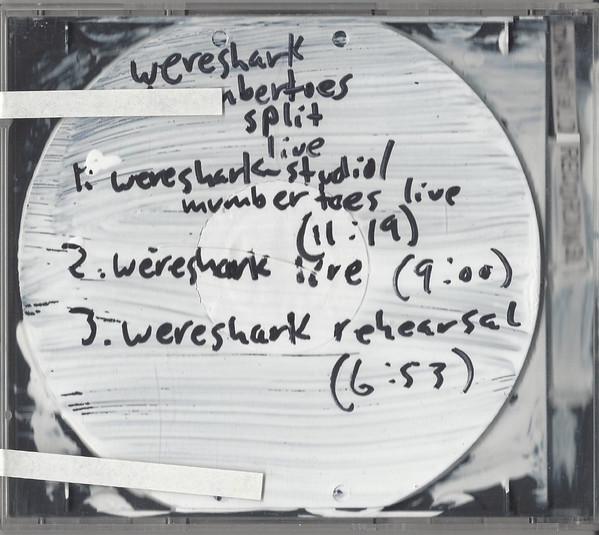 wereshark
mbertoes
split
live
1: wereshark studio/
mumbertoes live
(11:19)
2. wereshark live (9:00)
3. wereshark rehearsal
(6:53)